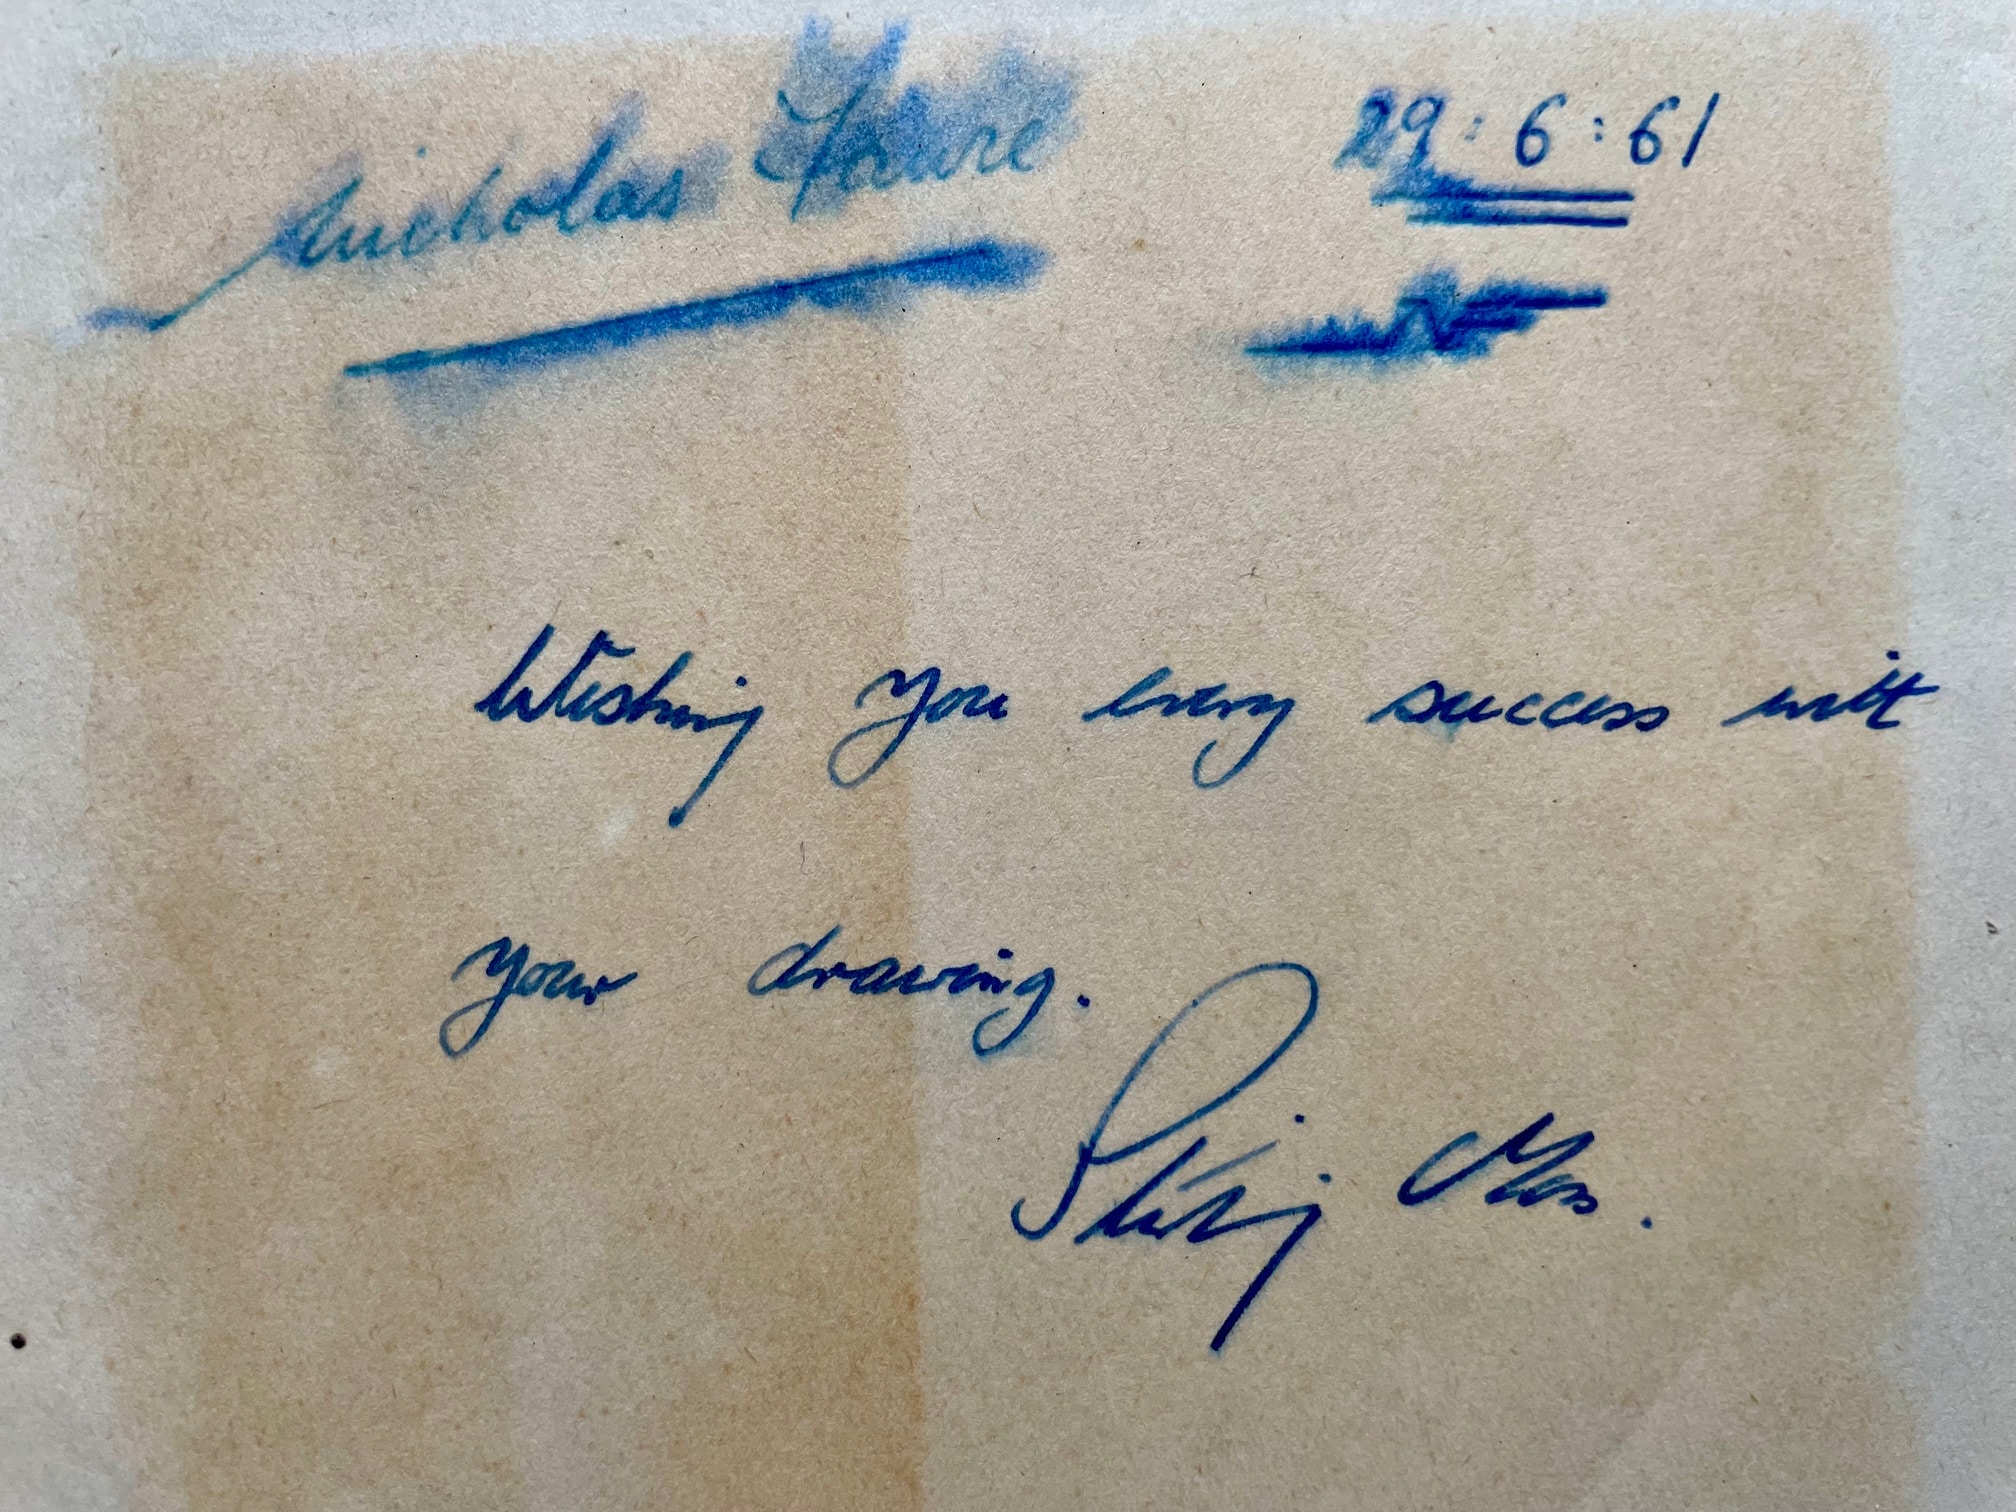 Nicholas Faure 29 : 6 : 61
Wishing you every success with
your drawing.
Stirling Moss.